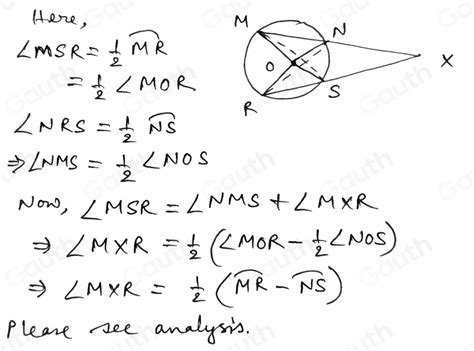 Here,
∠MSR = 1/2 M͡R
= 1/2 ∠MOR
∠NRS = 1/2 N͡S
⇒ ∠NMS = 1/2 ∠NOS
Now, ∠MSR = ∠NMS + ∠MXR
⇒ ∠MXR = 1/2 (∠MOR - 1/2 ∠NOS)
⇒ ∠MXR = 1/2 (M͡R - N͡S)
Please see analysis.
M
N
O
X
S
R
Gauth